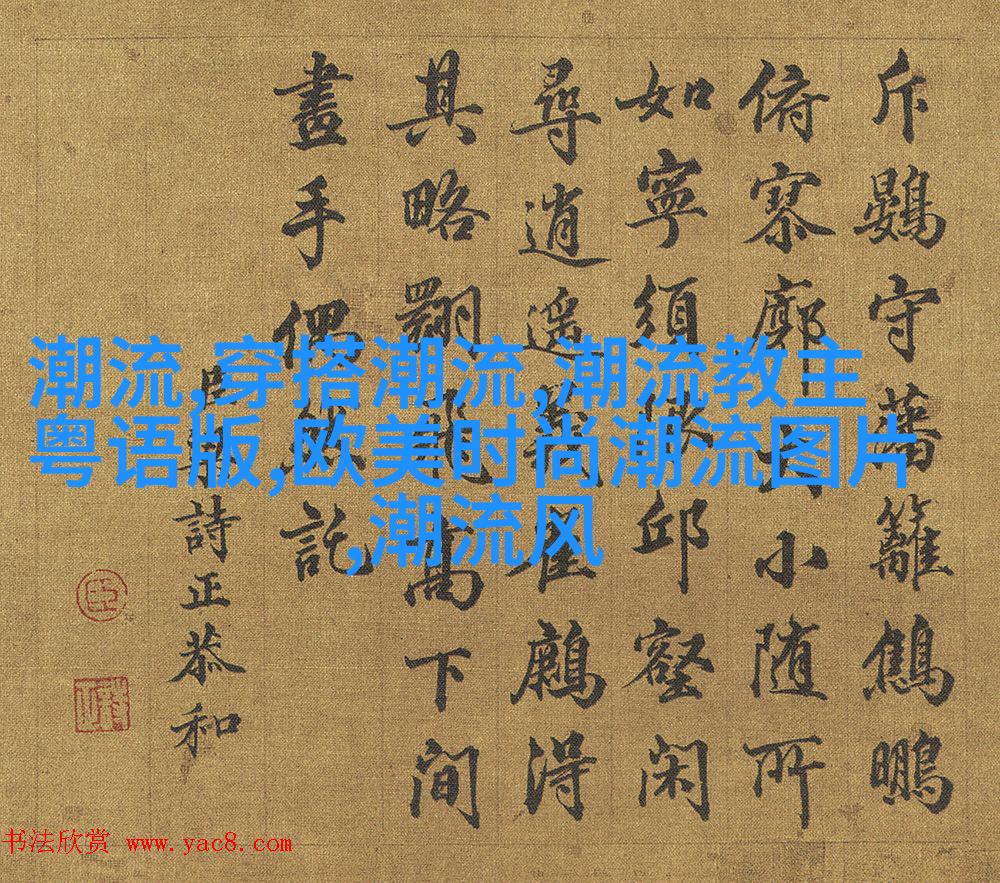 斥鷃守藩籬鷦鵬
俯寥廓大小随所
如寧須邱壑闲
尋逍遥鷴得
其略翔飛高下間
畫手偶然託
臣梁詩正恭和
潮流,穿搭潮流,潮流教主
粤语版,欧美时尚潮流图片
,潮流风
书法欣赏 www.yac8.com